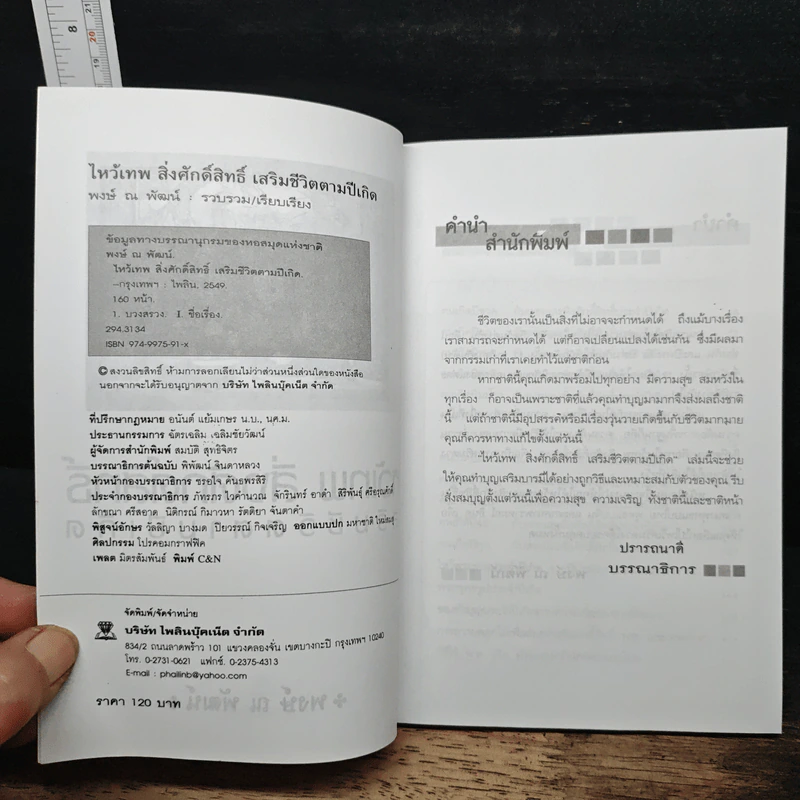 8
21
20
19
ไหว้เทพ สิ่งศักดิ์สิทธิ์ เสริมชีวิตตามปีเกิด
พงษ์ ณ พัฒน์ : รวบรวม/เรียบเรียง
ข้อมูลทางบรรณานุกรมของหอสมุดแห่งชาติ
พงษ์ ณ พัฒน์.
ไหว้เทพ สิ่งศักดิ์สิทธิ์ เสริมชีวิตตามปีเกิด.
--กรุงเทพฯ : ไพลิน, 2549.
160 หน้า.
1. บวงสรวง. I. ชื่อเรื่อง.
294.3134
ISBN 974-9975-91-x
© สงวนลิขสิทธิ์ ห้ามการลอกเลียนไม่ว่าส่วนหนึ่งส่วนใดของหนังสือ
นอกจากจะได้รับอนุญาตจาก บริษัท ไพลินบุ๊คเน็ต จำกัด
ที่ปรึกษากฎหมาย อนันต์ แย้มเกษร น.บ., นศ.ม.
ประธานกรรมการ ฉัตรเฉลิม เฉลิมชัยวัฒน์
ผู้จัดการสำนักพิมพ์ สมบัติ สุทธิจิตร
บรรณาธิการต้นฉบับ พิพัฒน์ จินดาหลวง
หัวหน้ากองบรรณาธิการ ขรอใจ คันธพรสิริ
ประจำกองบรรณาธิการ ภัทรภร ไวคำนวณ จักรินทร์ อาดำ สิริพันธุ์ ศรีอรุณศักดิ์
ลักขณา ศรีสอาด นิติกรณ์ กิมาวหา รัตติยา จันตาคำ
พิสูจน์อักษร วัลลิญา บางมด ปิยวรรณ์ กิจเจริญ ออกแบบปก มหาชาติ
ศิลปกรรม โปรคอมกราฟฟิค
เพลต มิตรสัมพันธ์ พิมพ์ C&N
จัดพิมพ์/จัดจำหน่าย
บริษัท ไพลินบุ๊คเน็ต จำกัด
834/2 ถนนลาดพร้าว 101 แขวงคลองจั่น เขตบางกะปิ กรุงเทพฯ 10240
โทร. 0-2731-0621 แฟกซ์. 0-2375-4313
E-mail : phailinb@yahoo.com
ราคา 120 บาท
คำนำ
สำนักพิมพ์
ชีวิตของเรานั้นเป็นสิ่งที่ไม่อาจจะกำหนดได้ ถึงแม้บางเรื่อง
เราสามารถจะกำหนดได้ แต่ก็อาจเปลี่ยนแปลงได้เช่นกัน ซึ่งมีผลมา
จากกรรมเก่าที่เราเคยทำไว้แต่ชาติก่อน
หากชาตินี้คุณเกิดมาพร้อมไปทุกอย่าง มีความสุข สมหวังใน
ทุกเรื่อง ก็อาจเป็นเพราะชาติที่แล้วคุณทำบุญมามากจึงส่งผลถึงชาติ
นี้ แต่ถ้าชาตินี้มีอุปสรรคหรือมีเรื่องวุ่นวายเกิดขึ้นกับชีวิตมากมาย
คุณก็ควรหาทางแก้ไขตั้งแต่วันนี้
"ไหว้เทพ สิ่งศักดิ์สิทธิ์ เสริมชีวิตตามปีเกิด" เล่มนี้จะช่วย
ให้คุณทำบุญเสริมบารมีได้อย่างถูกวิธีและเหมาะสมกับตัวของคุณ รีบ
สั่งสมบุญตั้งแต่วันนี้เพื่อความสุข ความเจริญ ทั้งชาตินี้และชาติหน้า
ปรารถนาดี
บรรณาธิการ